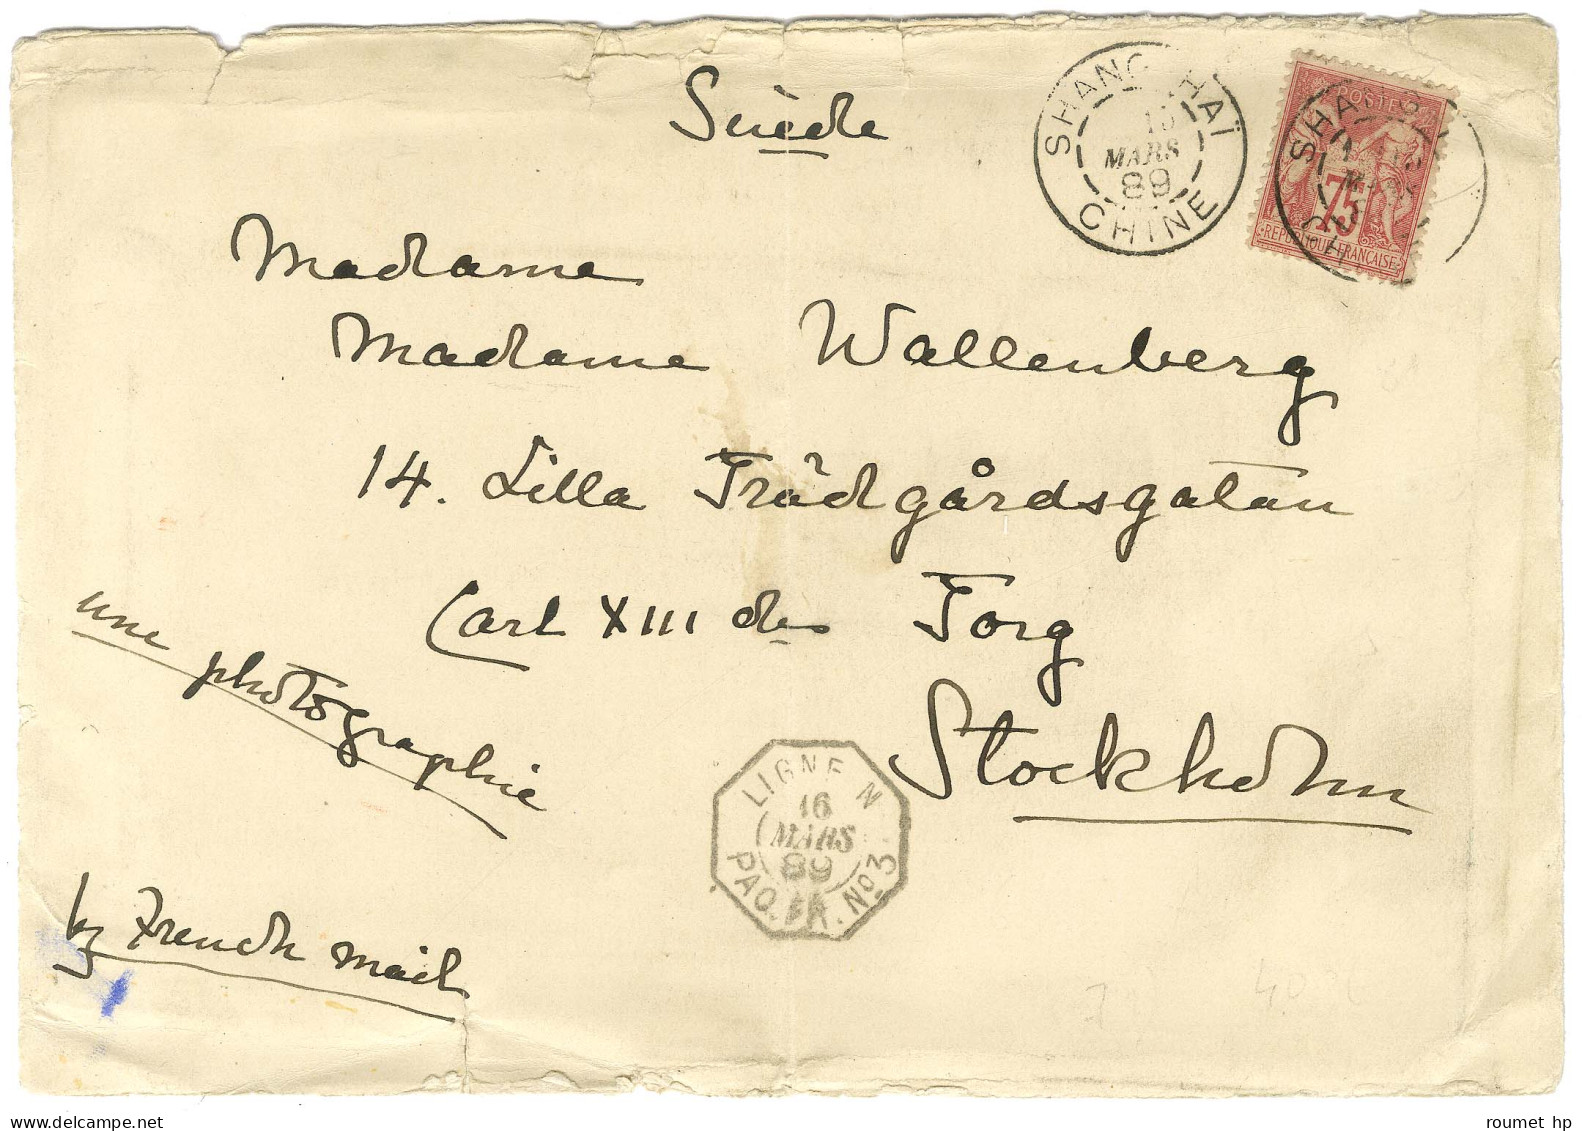 Suède
SHANG HAÏ
15
MARS
89
CHINE
POSTES
75
REPUBLIQUE FRANCAISE
Madame
Madame Wallenberg
14. Lilla Trädgårdsgatan
Carl XIII des Torg
Stockholm
une photographie
by French mail
LIGNE N
16
MARS
89
PAQ. FR. No 3
roumet hp